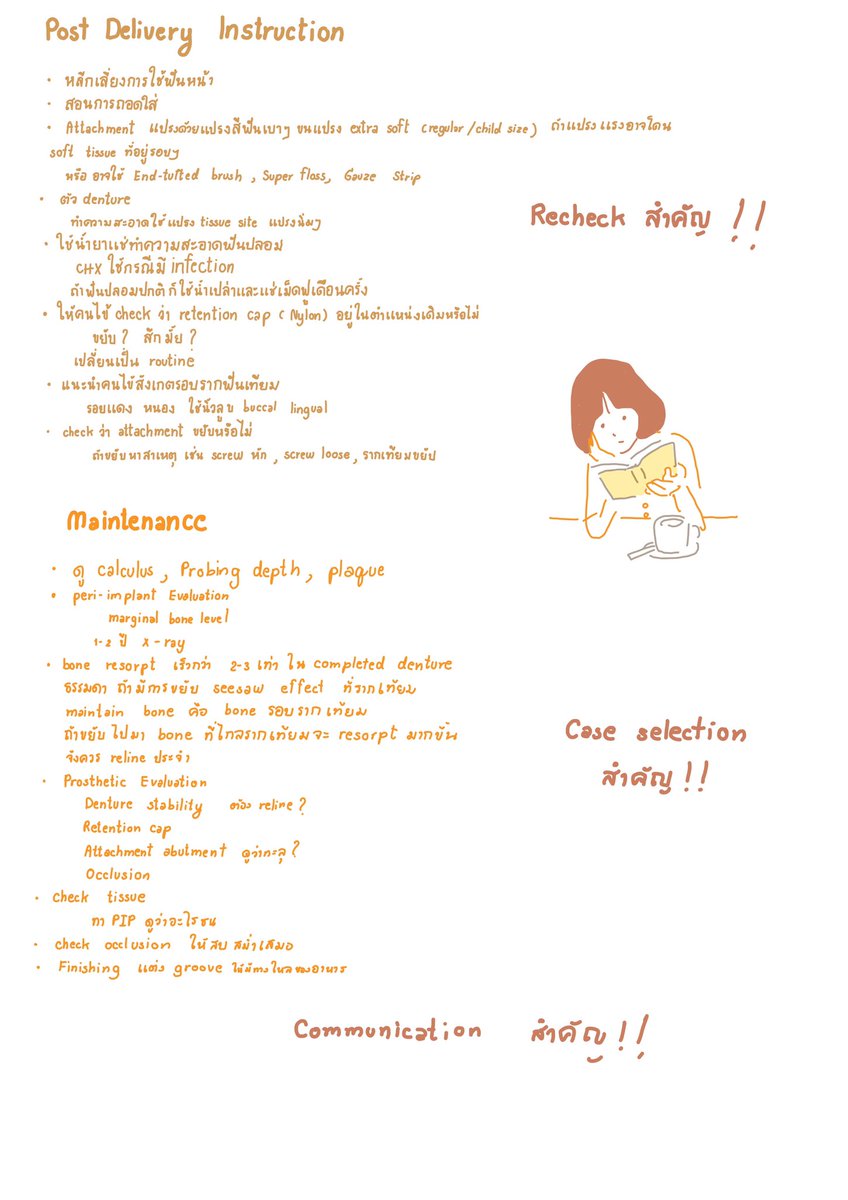 Post Delivery Instruction
• หลีกเลี่ยงการใช้ฟันหน้า
• สอนการถอดใส่
• Attachment แปรงด้วยแปรงสีฟันเบาๆ ขนแปรง extra soft (regular/child size) ถ้าแปรงแรงอาจโดน
soft tissue ที่อยู่รอบๆ
หรือ อาจใช้ End-tufted brush, Super floss, Gauze Strip
• ตัว denture
ทำความสะอาดใช้แปรง tissue site แปรงนิ่มๆ
• ใช้น้ำยาแช่ทำความสะอาดฟันปลอม
CHX ใช้กรณีมี infection
ถ้าฟันปลอมปกติก็ใช้น้ำเปล่าและแช่เม็ดฟู่เดือนครั้ง
• ให้คนไข้ check ว่า retention cap (Nylon) อยู่ในตำแหน่งเดิมหรือไม่
ขยับ? สึกมั้ย?
เปลี่ยนเป็น routine
• แนะนำคนไข้สังเกตรอบรากฟันเทียม
รอยแดง หนอง ใช้นิ้วลูบ buccal lingual
• check ว่า attachment ขยับหรือไม่
ถ้าขยับหาสาเหตุ เช่น screw หัก, screw loose, รากเทียมขยับ
Recheck สำคัญ !!
Maintenance
• ดู calculus, Probing depth, plaque
• peri-implant Evaluation
marginal bone level
1-2 ปี X-ray
• bone resorpt เร็วกว่า 2-3 เท่า ใน completed denture
ธรรมดา ถ้ามีการขยับ seesaw effect ที่รากเทียม
maintain bone คือ bone รอบรากเทียม
ถ้าขยับไปมา bone ที่ไกลรากเทียมจะ resorpt มากขึ้น
จึงควร reline ประจำ
• Prosthetic Evaluation
Denture stability ต้อง reline?
Retention cap
Attachment abutment ดูว่าทะลุ?
Occlusion
• Check tissue
ทา PIP ดูว่าอะไรชน
• check occlusion ให้สบสม่ำเสมอ
• Finishing แต่ง groove ให้มีทางไหลของอาหาร
Case selection
สำคัญ !!
Communication สำคัญ !!